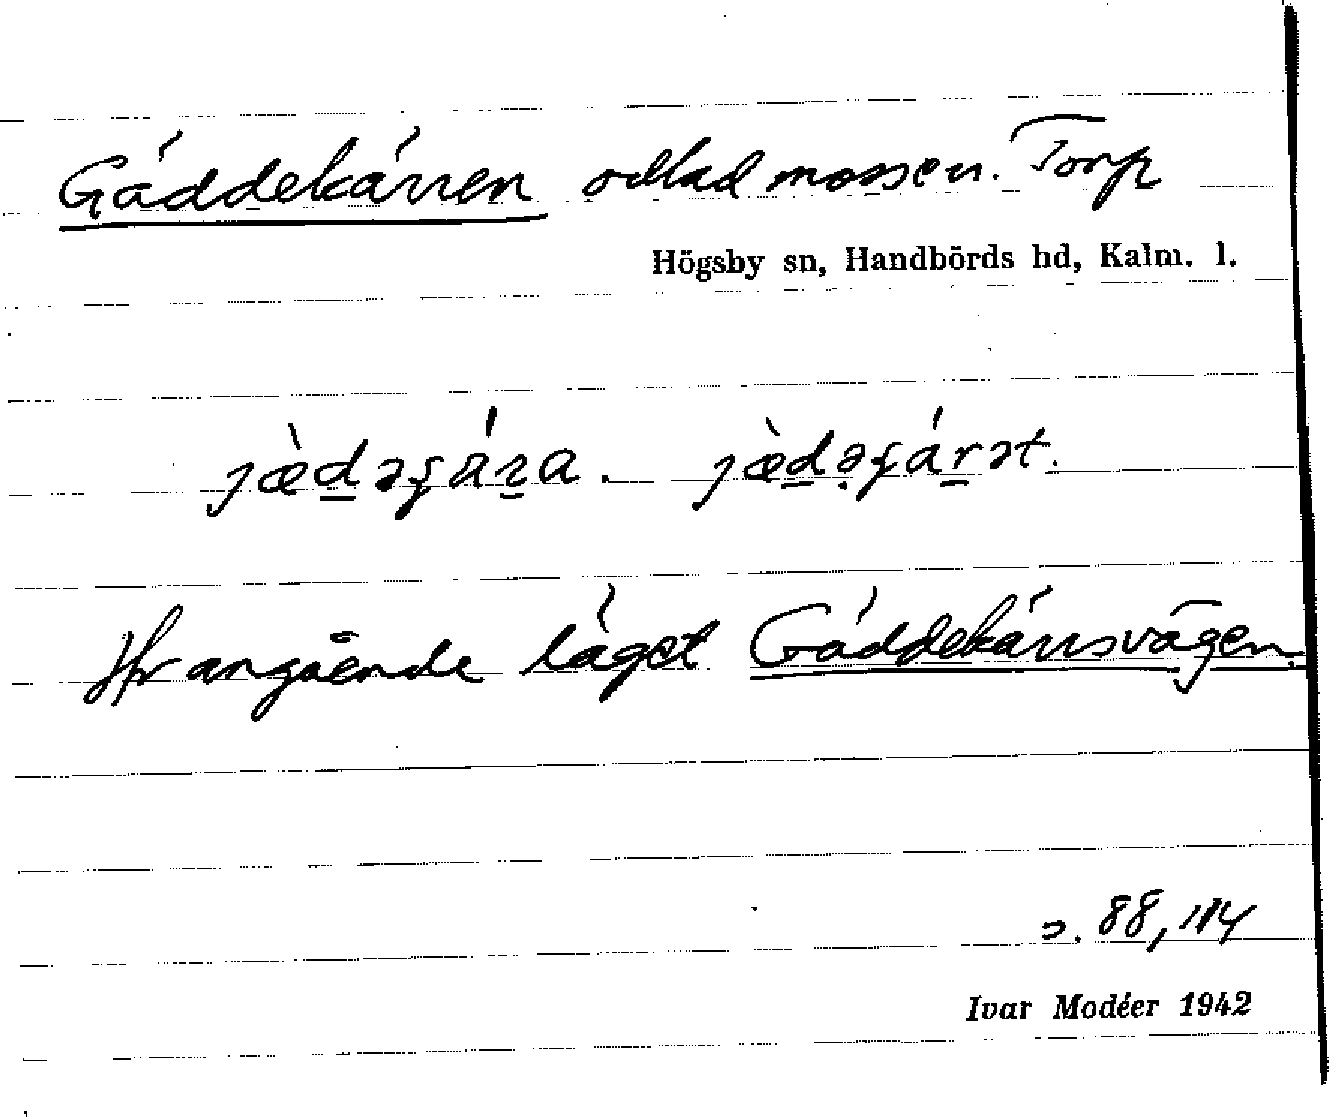 Gäddekärren odlad mossen. Torp
Högsby sn, Handbörds hd, Kalm. l.
Jfr angående läget Gäddekärrsvägen.
s. 88, 114
Ivar Modéer 1942